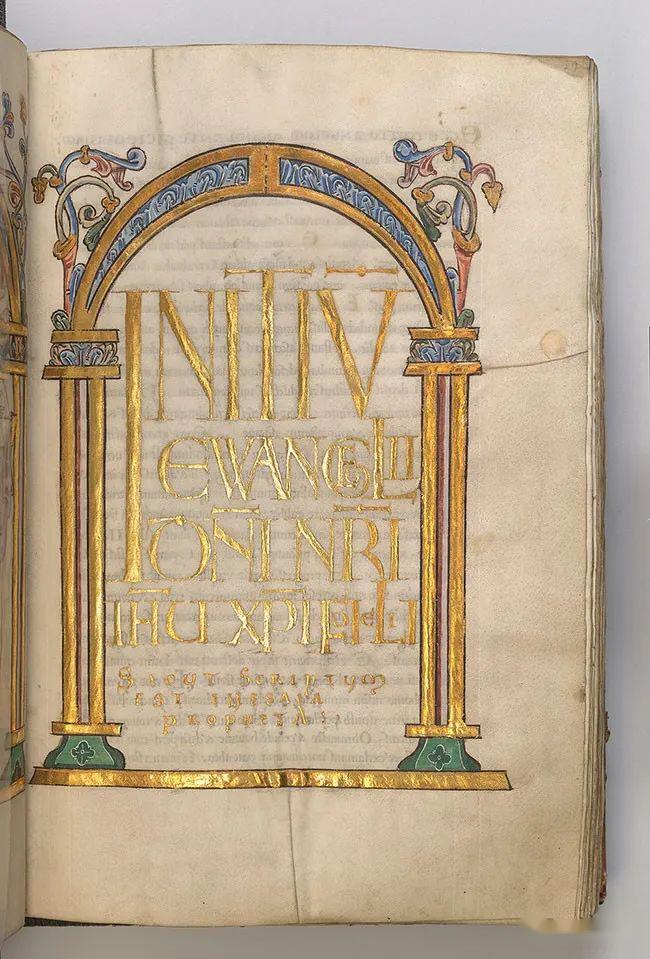 INITIV̄
EWANGELII
DN̄I NR̄I
IH̄U XP̄I FILI DEI
SICUT SCRIPTUM
EST IN ESAIA
PROPHETA: